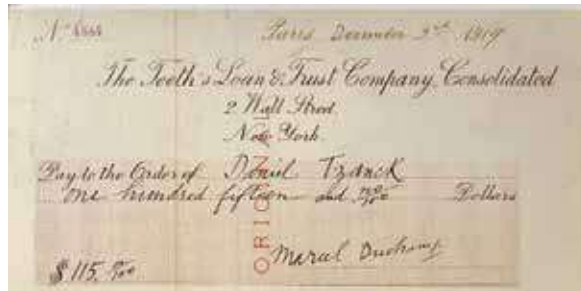 No
Paris December 3rd 1919
The Teeth's Loan & Trust Company, Consolidated
2 Wall Street.
New York.
Pay to the Order of Daniel Tzanck
one hundred fifteen and no/100 Dollars
ORIGINAL
$ 115. no/100
Marcel Duchamp